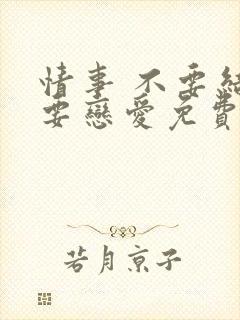 情事 不要結
要戀愛免費
若月京子